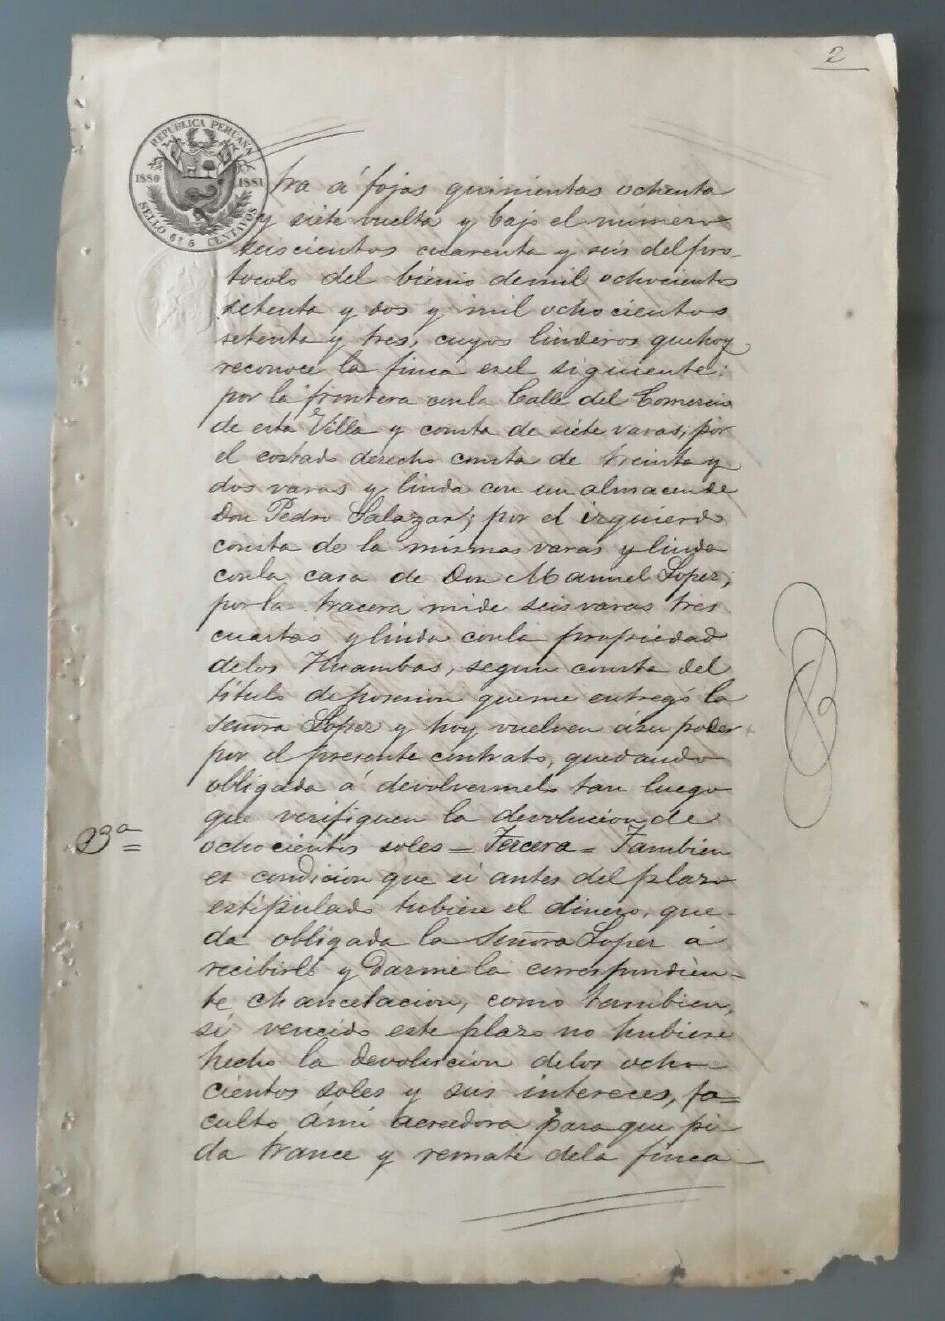 2
REPUBLICA PERUANA
1880 1881
SELLO 6º 5 CENTAVOS
tra á fojas quinientas ochenta
y siete vuelta y bajo el numero
cuarenta y seis del pro-
tocolo del bienio de mil ochocientos
setenta y dos y mil ochocientos
setenta y tres, cuyos linderos que hoy
reconoce la finca es el siguiente:
por la frontera con la Calle del Comercio
de esta Villa y consta de siete varas; por
el costado derecho consta de treinta y
dos varas y linda con un almacen de
Don Pedro Salazar; por el izquierdo
consta de la mismas varas y linda
con la casa de Don Manuel Lopez;
por la tracera mide seis varas tres
cuartas y linda con la propiedad
de los Huambos, segun consta del
titulo de posesion que me entregó la
Señora Lopez y hoy vuelven á su poder
por el presente contrato, quedando
obligada á devolvermelo tan luego
que verifiquen la devolucion de
3ª
ochocientos soles = Tercera = Tambien
es condicion que si antes del plazo
estipulado tubiese el dinero, que-
da obligada la Señora Lopez á
recibirlo y darme la correspondien-
te chancelacion, como tambien,
si vencido este plazo no hubiese
hecho la devolucion de los ocho-
cientos soles y sus intereces, fa=
culto á mi acredora para que pi
da trance y remate de la finca